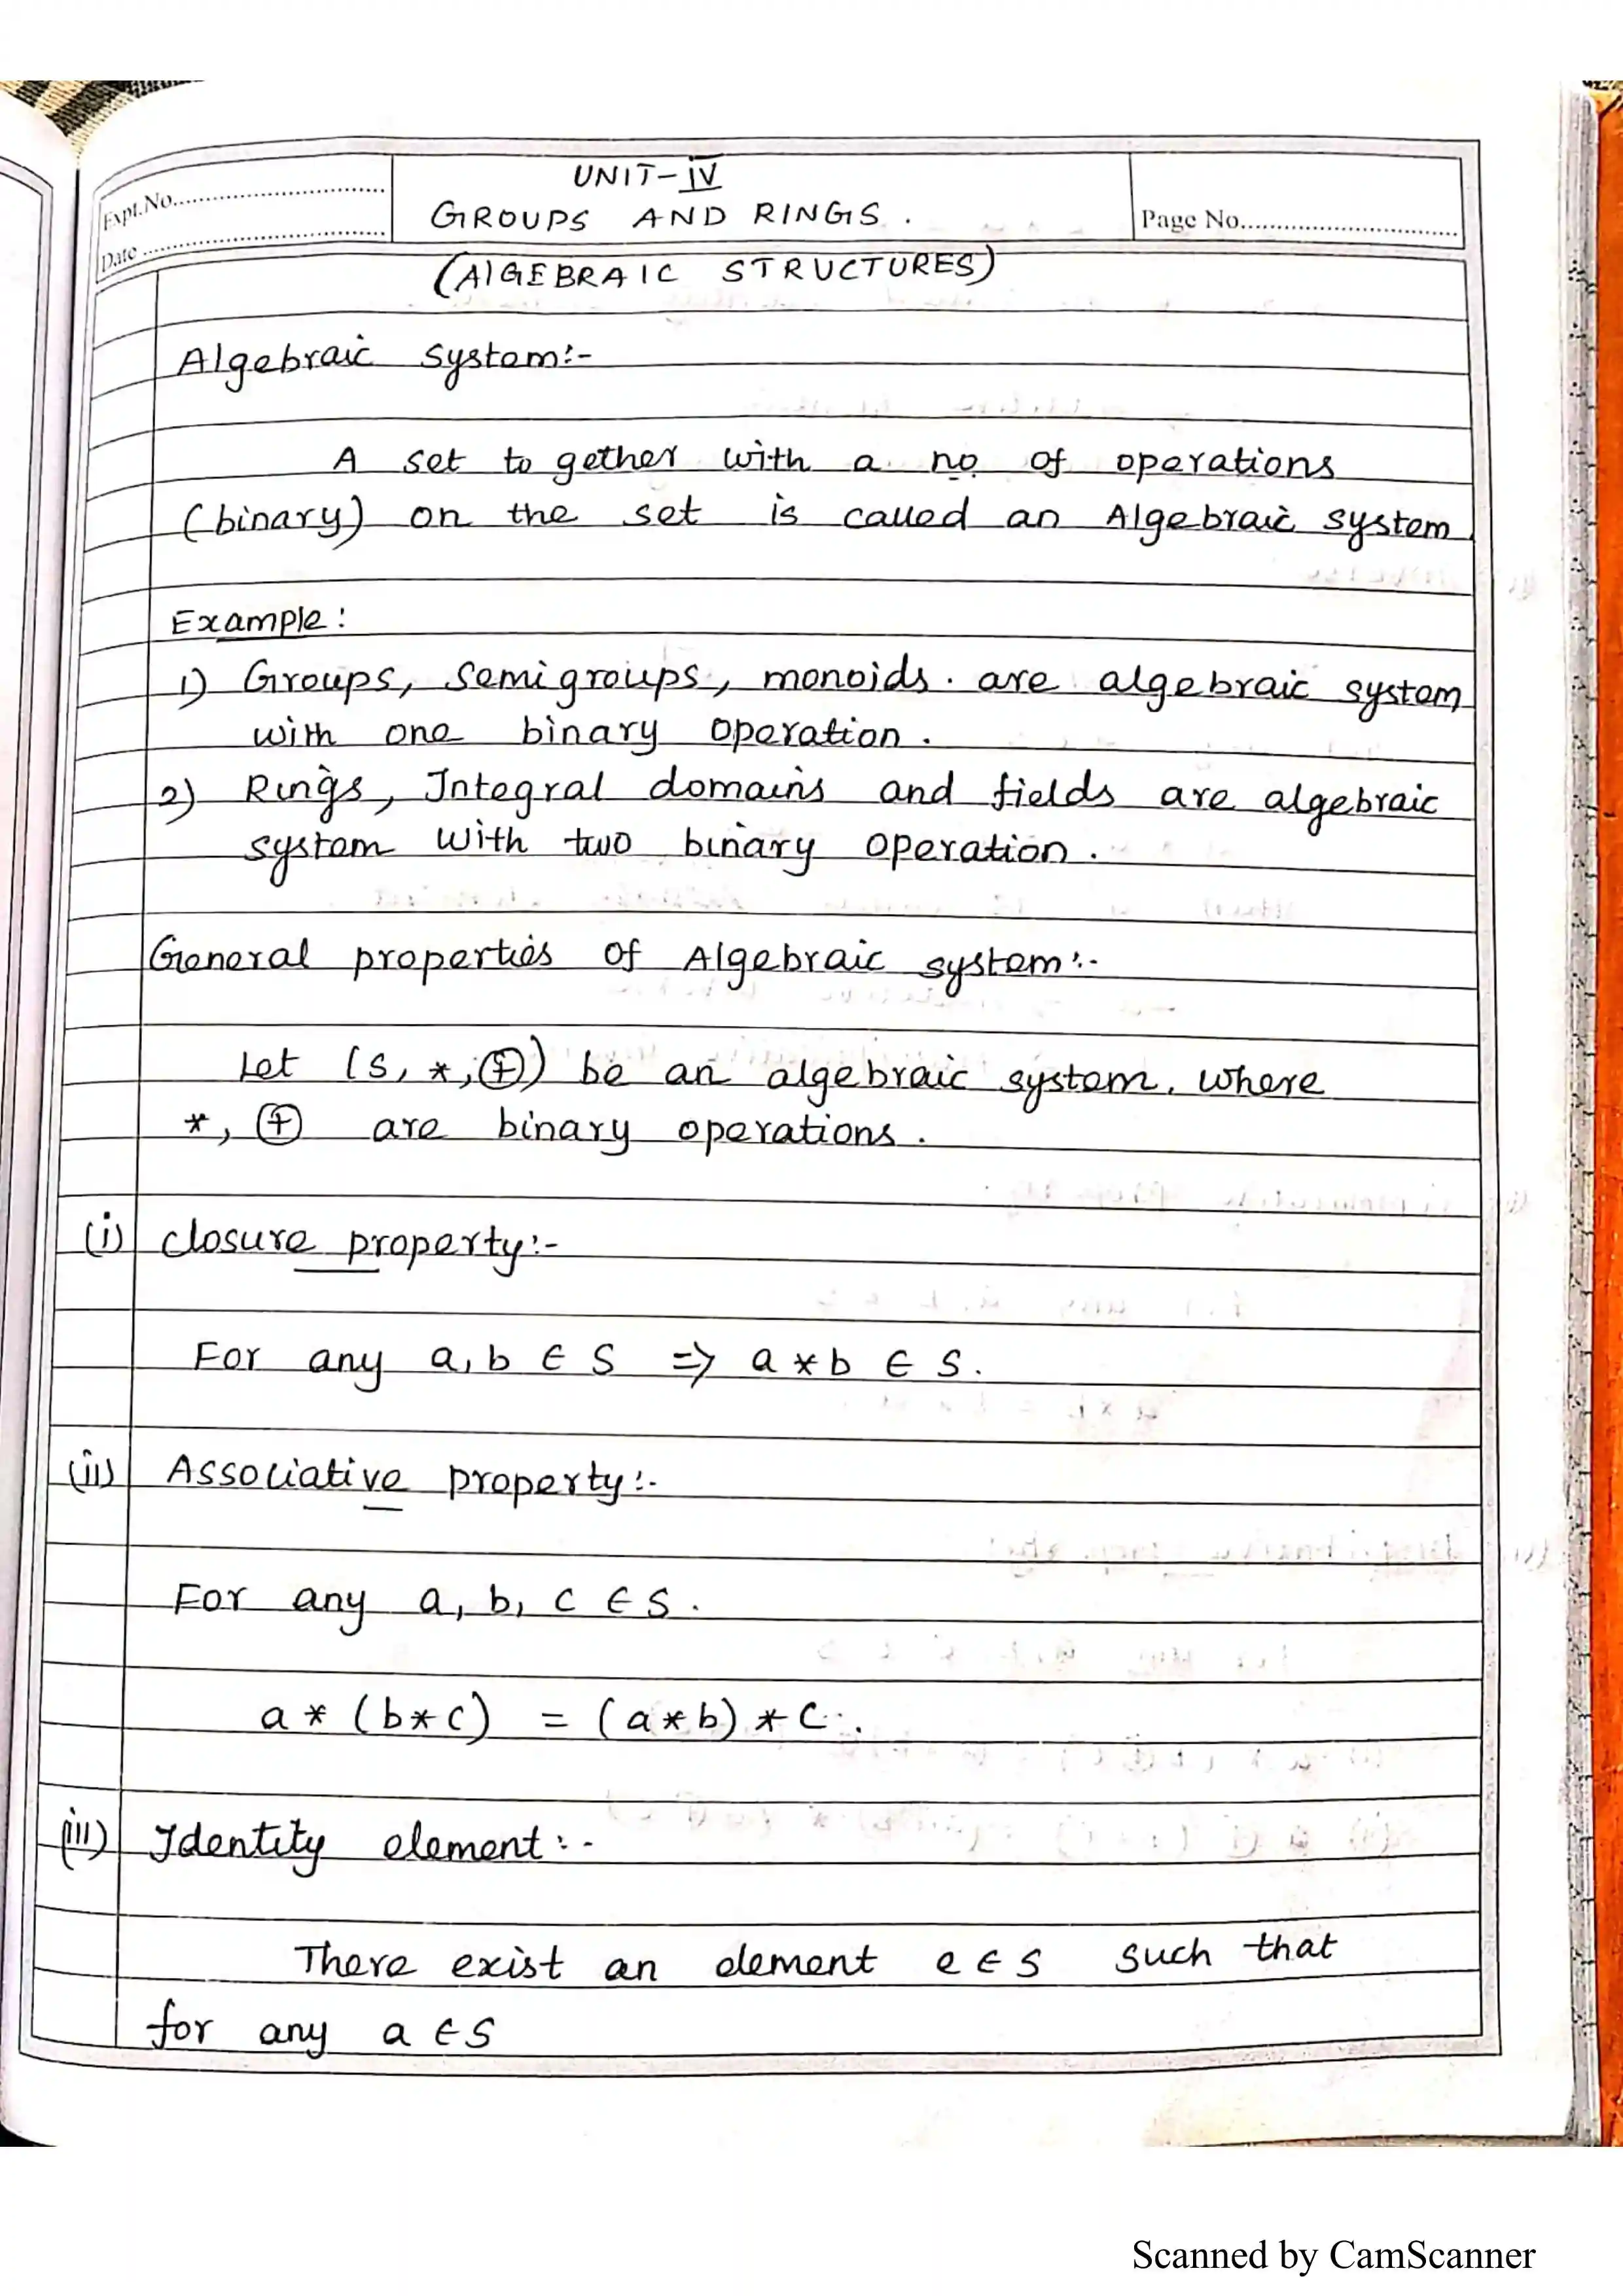 UNIT-IV
Expt.No.
GROUPS AND RINGS.
Page No.
Date
(AlGEBRAIC STRUCTURES)
Algebraic system:-
A set to gether with a no of operations
(binary) on the set is called an Algebraic system.
Example:
1) Groups, semigroups, monoids. are algebraic system
with one binary operation.
2) Rings, Integral domains and fields are algebraic
system with two binary operation.
General properties of Algebraic system:-
Let (S, *, ⊕) be an algebraic system. where
*, ⊕ are binary operations.
(i) closure property:-
For any a, b ∈ S ⇒ a * b ∈ S.
(ii) Associative property:-
For any a, b, c ∈ S.
a * (b * c) = (a * b) * c.
(iii) Identity element:-
There exist an element e ∈ S such that
for any a ∈ S
Scanned by CamScanner